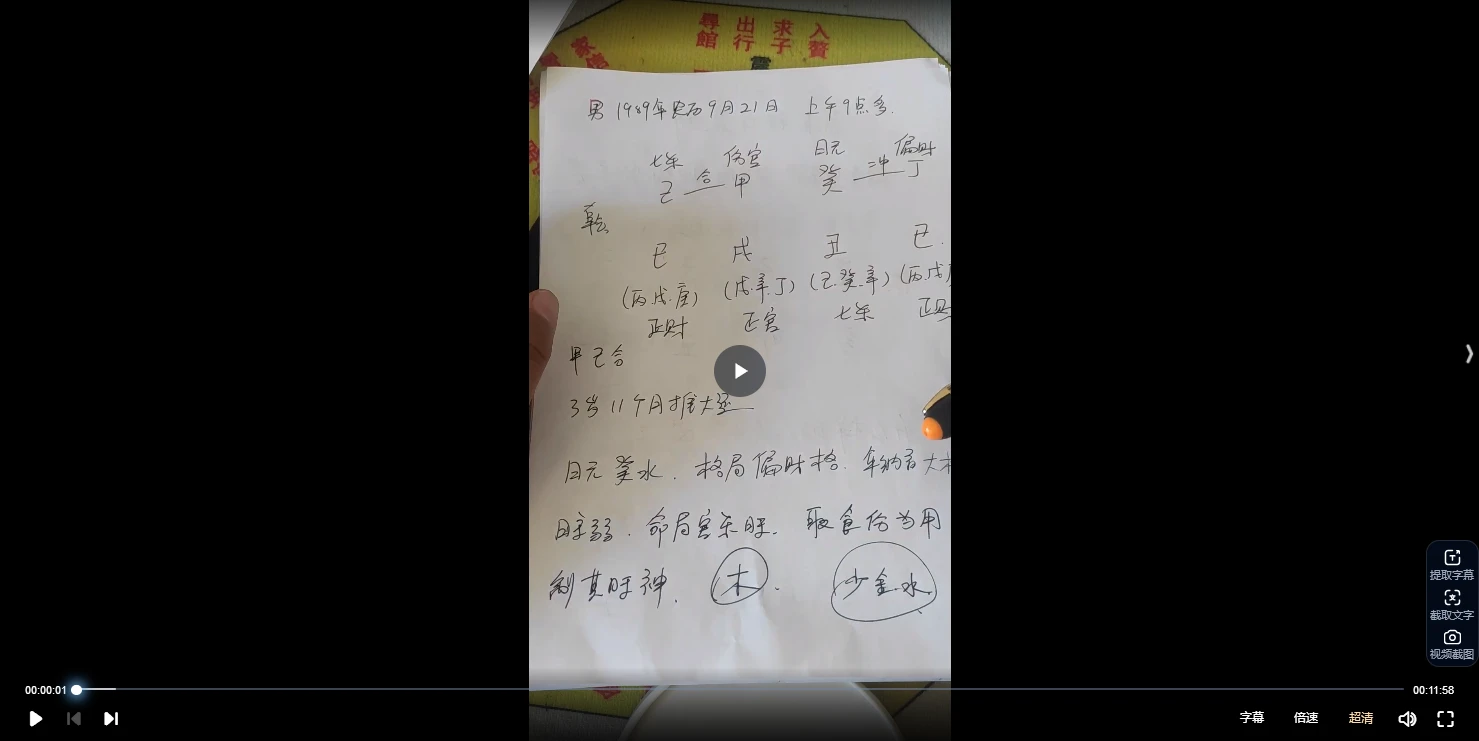 尋 出 求 入
館 行 子 贅
男 1989年农历9月21日 上午9点多.
七杀 伤官 日元 偏财
己 合 甲 癸 冲 丁
乾
巳 戌 丑 巳.
(丙.戊.庚) (戊.辛.丁) (己.癸.辛) (丙.戊
正财 正官 七杀 正财
甲己合
3岁11个月推大运
日元癸水. 格局偏财格. 年纳音大林
日主弱. 命局官杀旺. 取食伤为用
制其旺神. 木. 少金.水.
提取字幕
截取文字
视频截图
00:00:01
00:11:58
字幕 倍速 超清